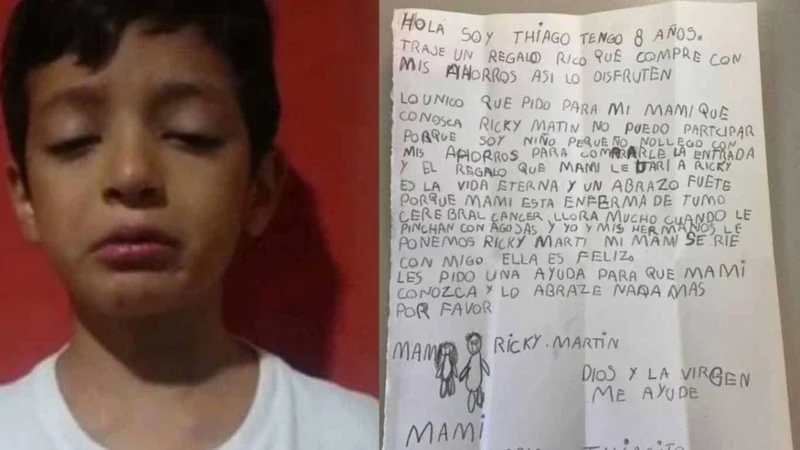 HOLA SOY THIAGO TENGO 8 AÑOS.
TRAJE UN REGALO RICO QUE COMPRE CON
MIS AHORROS ASI LO DISFRUTEN
LO UNICO QUE PIDO PARA MI MAMI QUE
CONOSCA RICKY MATIN NO PUEDO PARTCIPAR
PORQUE SOY NIÑO PEQUEÑO NOLLEGO CON
MIS AHORROS PARA COMPRARLE LA ENTRADA
Y EL REGALO QUE MAMI LE DARI A RICKY
ES LA VIDA ETERNA Y UN ABRAZO FUETE
PORQUE MAMI ESTA ENFERMA DE TUMO
CEREBRAL CANCER LLORA MUCHO CUANDO LE
PINCHAN CON AGOJAS Y YO Y MIS HERMANOS LE
PONEMOS RICKY MARTI MI MAMI SE RIE
CON MIGO ELLA ES FELIZ.
LES PIDO UNA AYUDA PARA QUE MAMI
CONOZCA Y LO ABRAZE NADA MAS
POR FAVOR
MAMI RICKY.MARTIN
DIOS Y LA VIRGEN
ME AYUDE
MAMI